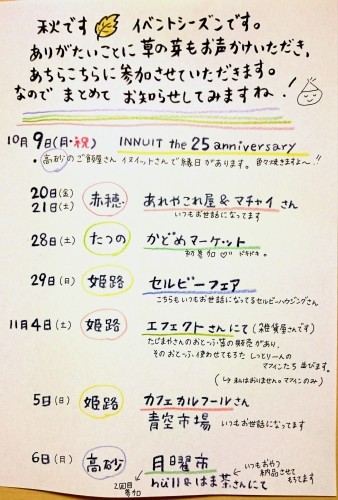 秋です イベントシーズンです。
ありがたいことに 草の芽もお声がけいただき、
あちらこちらに 参加させていただきます。
なので まとめて お知らせしてみますね!
10月 9日(月・祝) INNUIT the 25 anniversary
・高砂のご飯屋さん イヌイットさんで縁日があります。色々焼きますよ〜!!
20日(金)
21日(土) 赤穂 あれやこれ屋&マチャイさん
いつもお世話になってます
28日(土) たつの かどめマーケット
初参加♡ ドキドキ。
29日(日) 姫路 セルビーフェア
こちらもいつもお世話になってるセルビーハウジングさん
11月4日(土) 姫路 エフェクトさんにて(雑貨屋さんです)
たじまやさんのおとっふ等の販売があり、
そのおとっふ使わせてもろた しっとり〜んの
マフィンたち 並びます。
(↳私はおりませんの マフィンのみ)
5日(日) 姫路 カフェカルフールさん
青空市場 いつもお世話になってます
6日(日) 高砂 月曜市
2回目参加 hüll&はま茶さんにて
いつもおやつ
納品させて
もろてます